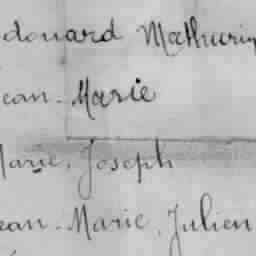 douard Mathurin
ean-Marie
Marie, Joseph
ean-Marie, Julien